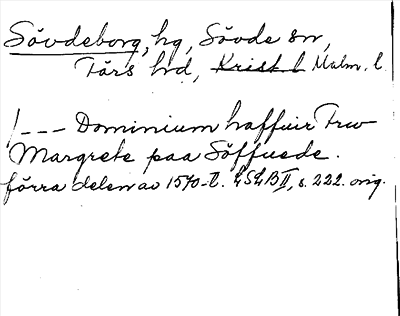 Sövdeborg, hg, Sövde sn,
Färs hrd, Krist. l Malm. l.
/--- Dominium haffuir Frw
Margrete paa Söffuede.
förra delen av 1570-t. LSLB II, s. 222. orig.